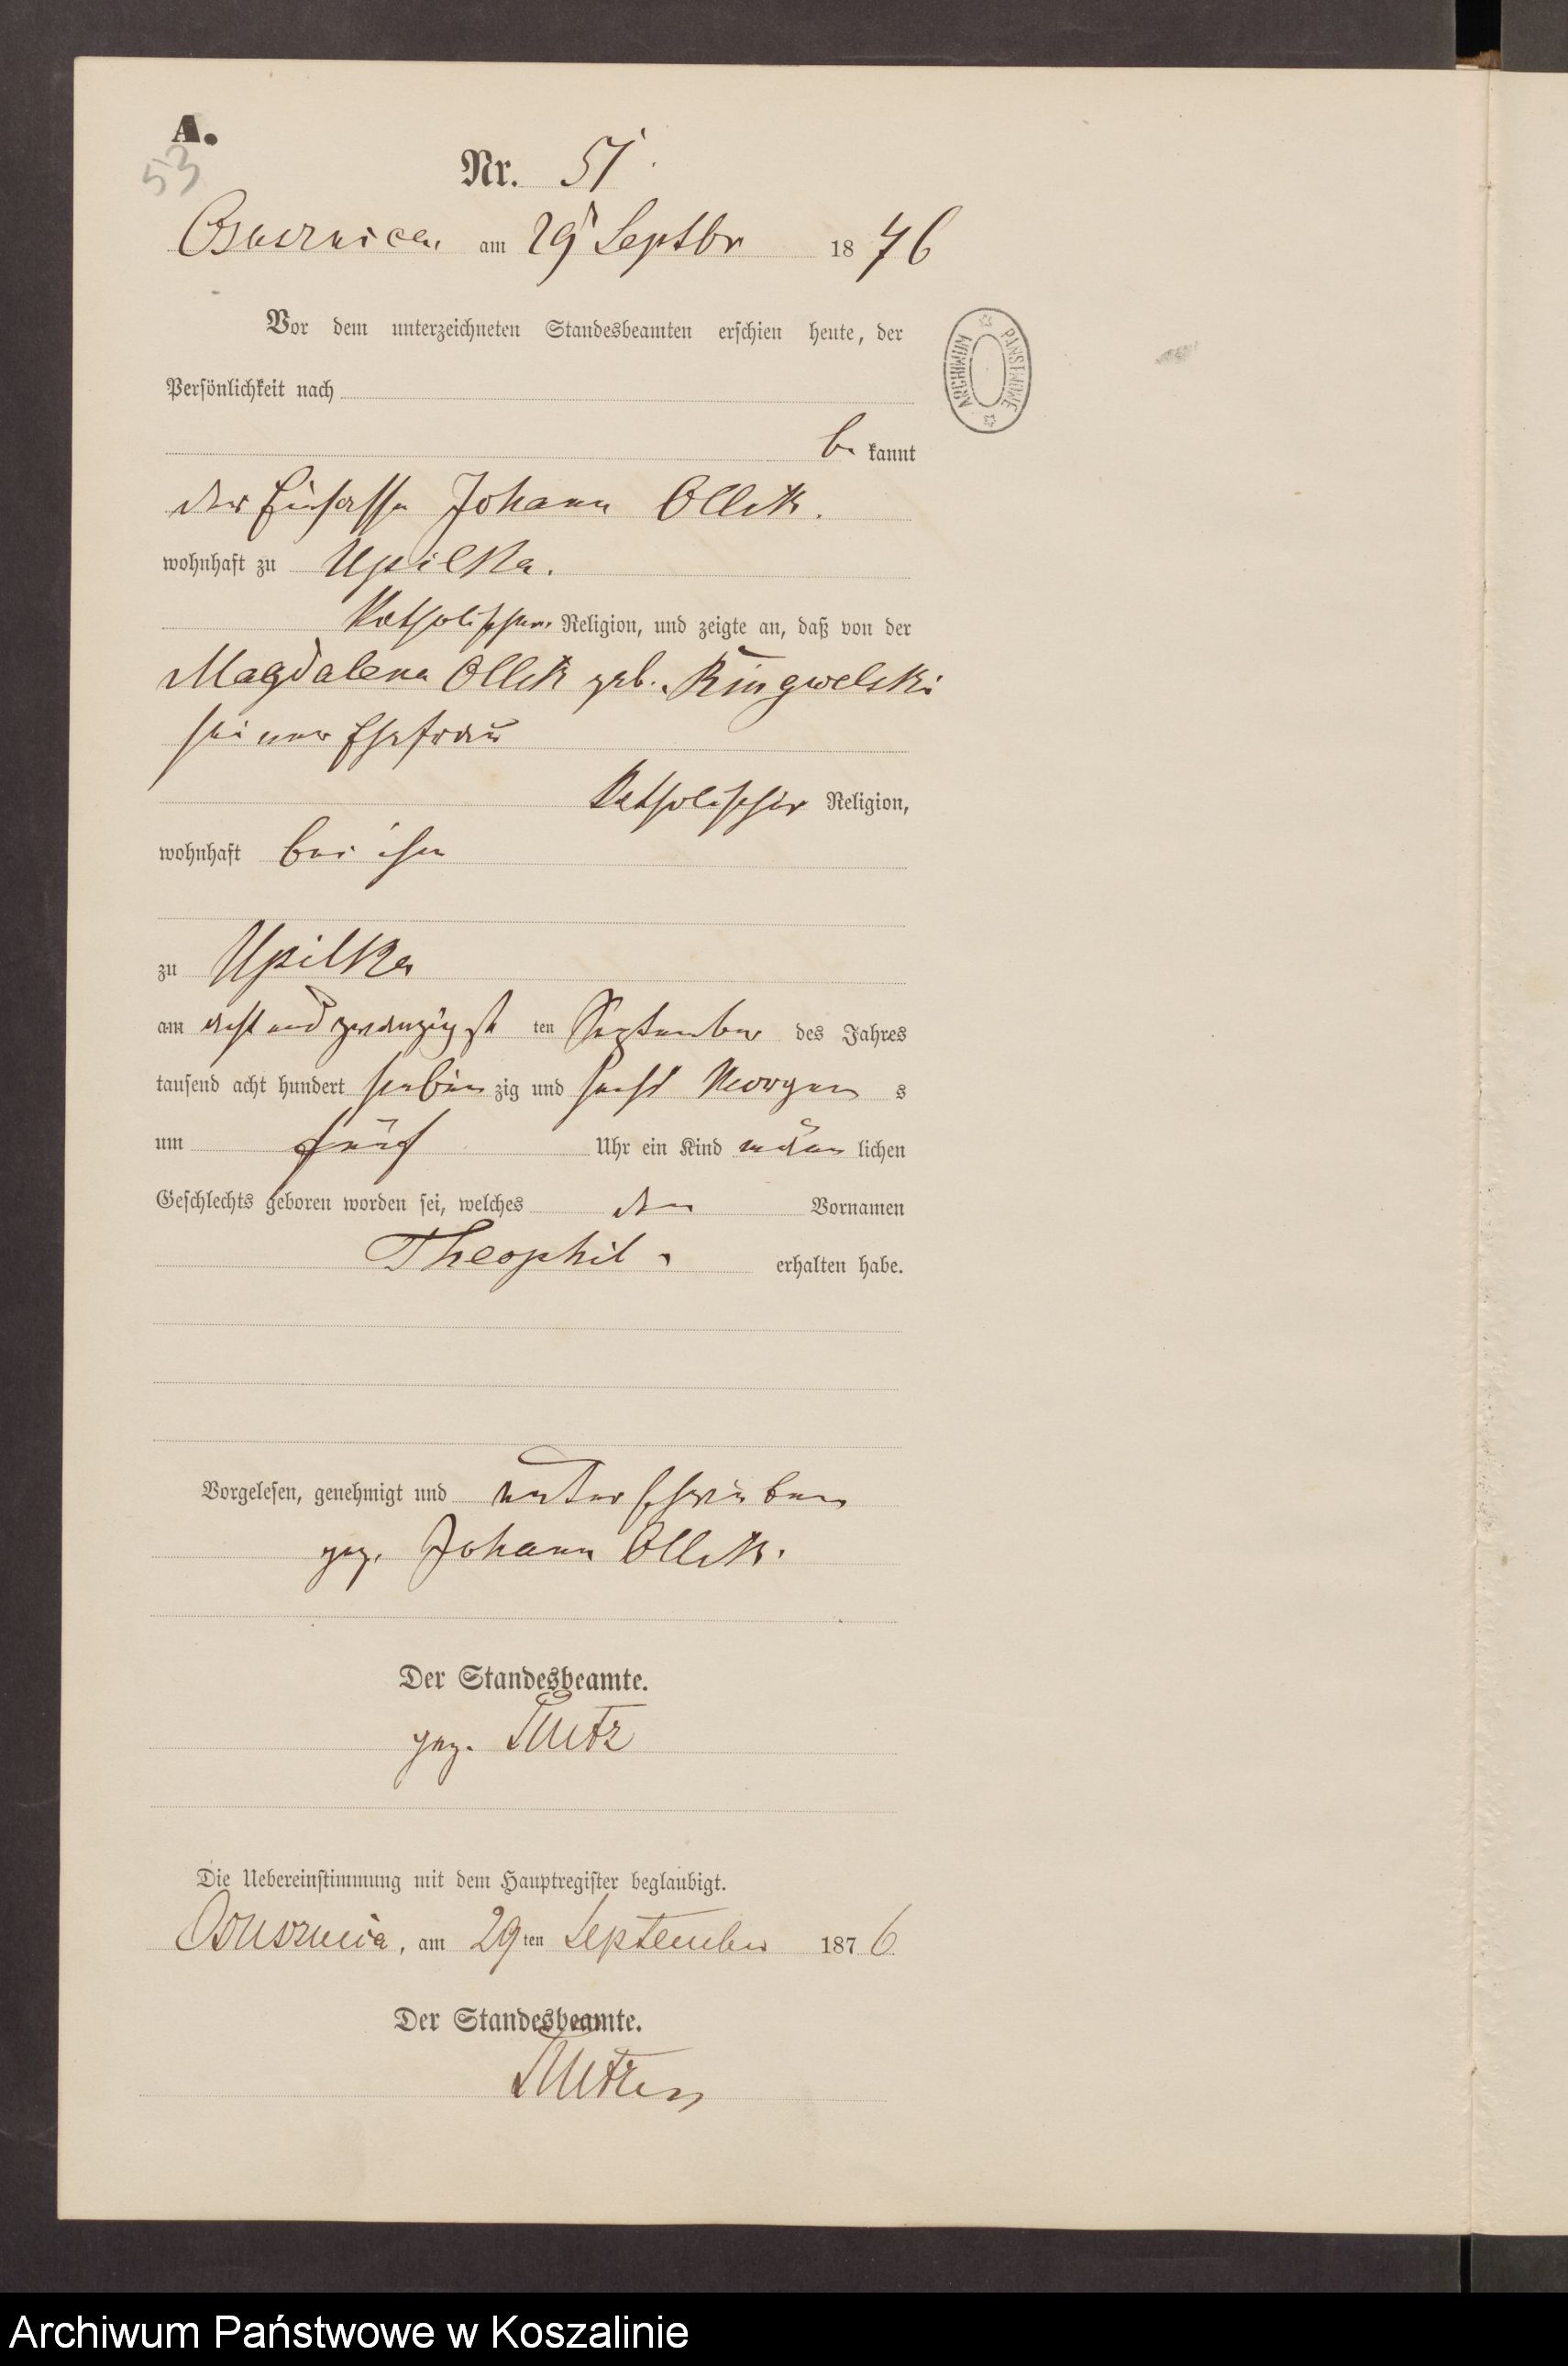 A.
53
Nr. 51
Ossusznica am 29 Septbr 1876
Vor dem unterzeichneten Standesbeamten erschien heute, der
Persönlichkeit nach
be kannt
der Einsasse Johann Ollik.
wohnhaft zu Upilka.
Katholischer Religion, und zeigte an, daß von der
Magdalena Ollik geb. Ringwelski
seiner Ehefrau
Katholischer Religion,
wohnhaft bei ihm
zu Upilka
am acht und zwanzigst ten September des Jahres
tausend acht hundert sieben zig und sechs Morgen s
um fünf Uhr ein Kind män lichen
Geschlechts geboren worden sei, welches den Vornamen
Theophil erhalten habe.
Vorgelesen, genehmigt und unterschrieben
gez. Johann Ollik.
Der Standesbeamte.
gez.
Die Uebereinstimmung mit dem Hauptregister beglaubigt.
am 29ten September 1876
Der Standesbeamte.
ARCHIWUM PAŃSTWOWE
Archiwum Państwowe w Koszalinie